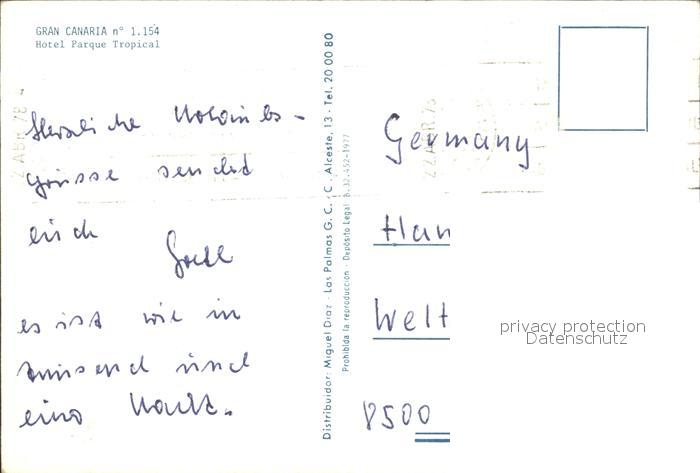 GRAN CANARIA n° 1.154
Hotel Parque Tropical
Herzliche Urlaubs-
grüsse sendet
euch
es ist wie in
tausend und
einer Nacht.
Distribuidor: Miguel Diaz - Las Palmas G. C. - C. Alceste, 13 - Tel. 20 00 80
Prohibida la reproducción - Depósito Legal B. 32.452-1977
22 ABR. 78
Germany
Han
Welt
8500
privacy protection
Datenschutz